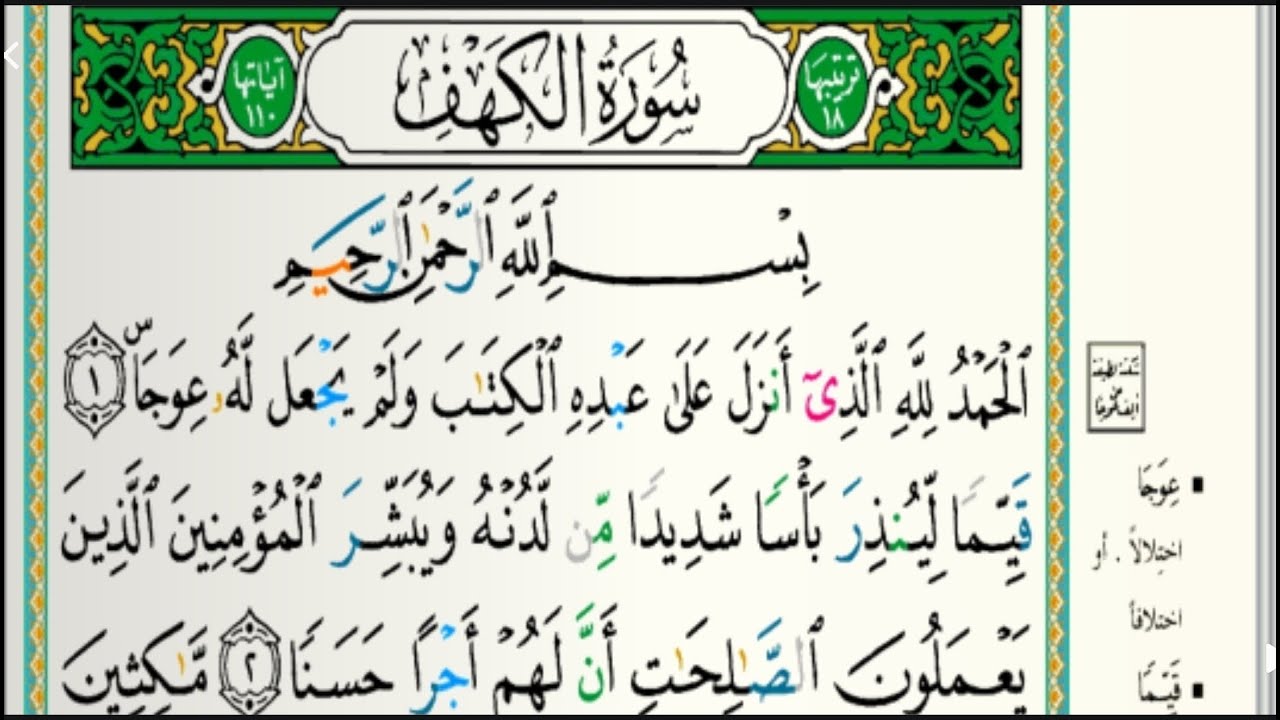 ترتيبها ١٨
سُورَةُ الكَهْفِ
آياتها ١١٠
بِسْمِ ٱللَّهِ ٱلرَّحْمَٰنِ ٱلرَّحِيمِ
ٱلْحَمْدُ لِلَّهِ ٱلَّذِىٓ أَنزَلَ عَلَىٰ عَبْدِهِ ٱلْكِتَٰبَ وَلَمْ يَجْعَل لَّهُۥ عِوَجَاۜ ١
قَيِّمًا لِّيُنذِرَ بَأْسًا شَدِيدًا مِّن لَّدُنْهُ وَيُبَشِّرَ ٱلْمُؤْمِنِينَ ٱلَّذِينَ
يَعْمَلُونَ ٱلصَّٰلِحَٰتِ أَنَّ لَهُمْ أَجْرًا حَسَنًا ٢ مَّٰكِثِينَ
عِوَجَا
اختِلالاً . أو
اختلافاً
قَيِّمًا